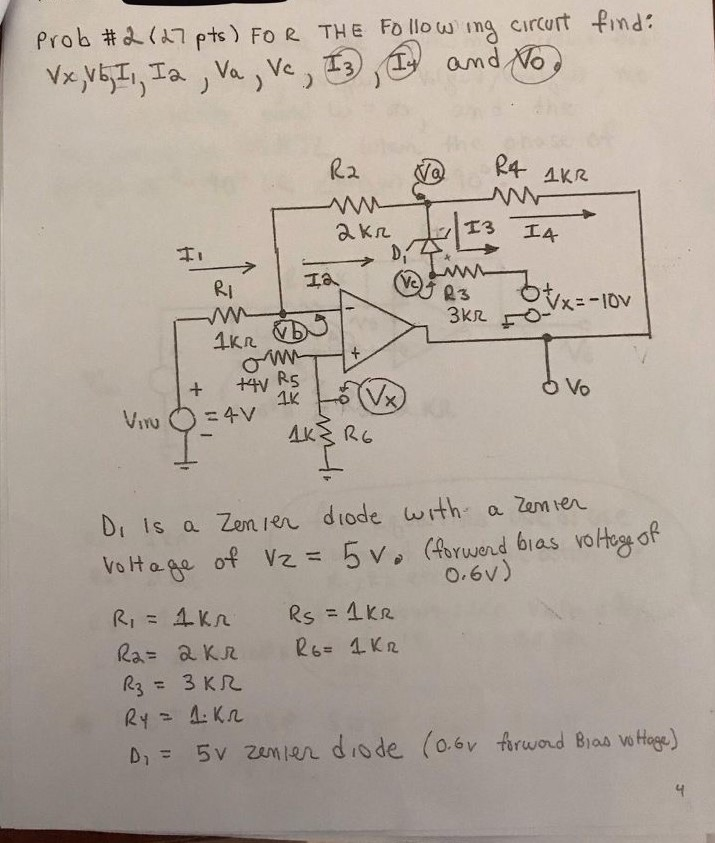 Prob #2 (27 pts) FOR THE Following circuit find:
Vx, Vb, I1, I2, Va, Vc, I3, I4 and Vo.
R2 Va R4 1KΩ
2KΩ D1 I3 I4
I1 I2 Vc R3 + Vx = -10V
R1 3KΩ -
1KΩ Vb -
+4V R5 +
1K Vx Vo
+ VIN = 4V
- 1K R6
D1 is a Zenier diode with a Zenier
Voltage of Vz = 5V. (forward bias voltage of
0.6V)
R1 = 1KΩ R5 = 1KΩ
R2 = 2KΩ R6 = 1KΩ
R3 = 3KΩ
R4 = 1KΩ
D1 = 5V zenier diode (0.6v forword Bias voltage)
4